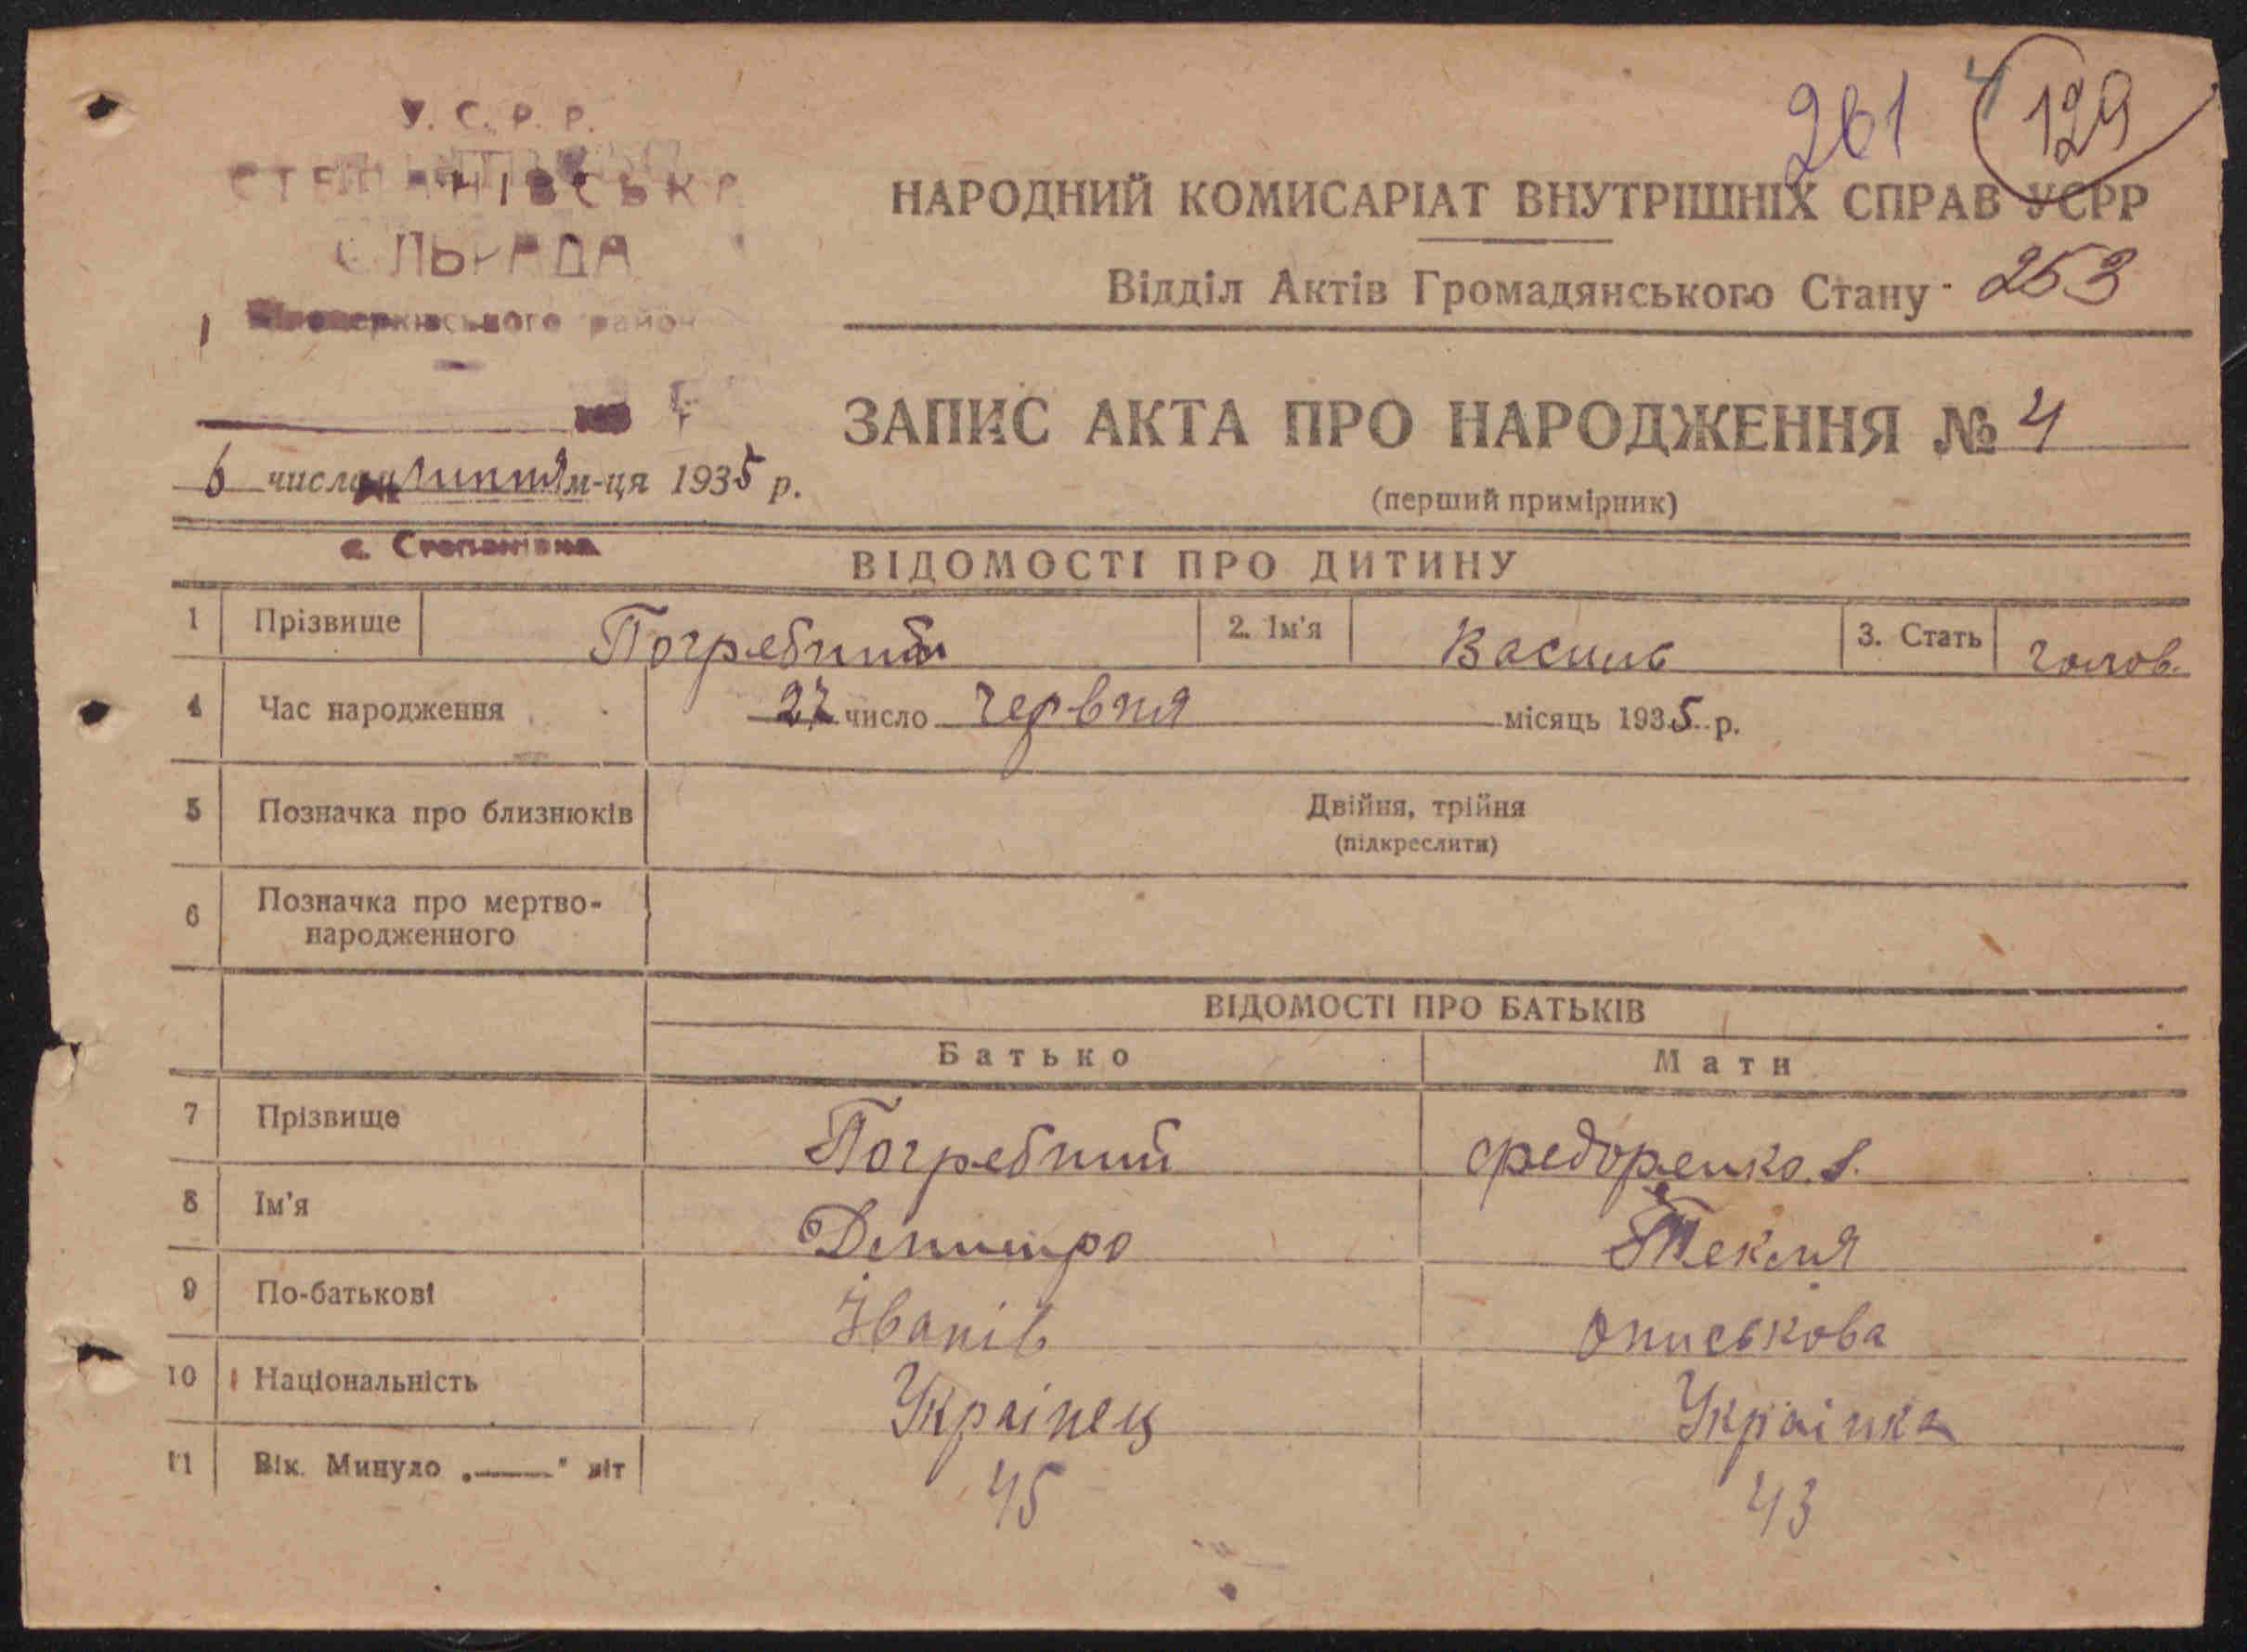 261 4 129
У. С. Р. Р.
НАРОДНИЙ КОМИСАРІАТ ВНУТРІШНІХ СПРАВ УСРР
Відділ Актів Громадянського Стану 253
ЗАПИС АКТА ПРО НАРОДЖЕННЯ № 4
6 числа липня м-ця 1935 р.
(перший примірник)
с. Степанівка
ВІДОМОСТІ ПРО ДИТИНУ
1 Прізвище Погребний 2. Ім'я Василь 3. Стать чолов.
4 Час народження 27 число червня місяць 1935 р.
5 Позначка про близнюків Двійня, трійня
(підкреслити)
6 Позначка про мертво-
народженного
ВІДОМОСТІ ПРО БАТЬКІВ
Батько Мати
7 Прізвище Погребний Федоренко
8 Ім'я Дмитро Текля
9 По-батькові Іванів Ониськова
10 Національність Украінец Украінка
11 Вік. Минуло „——" літ 45 43